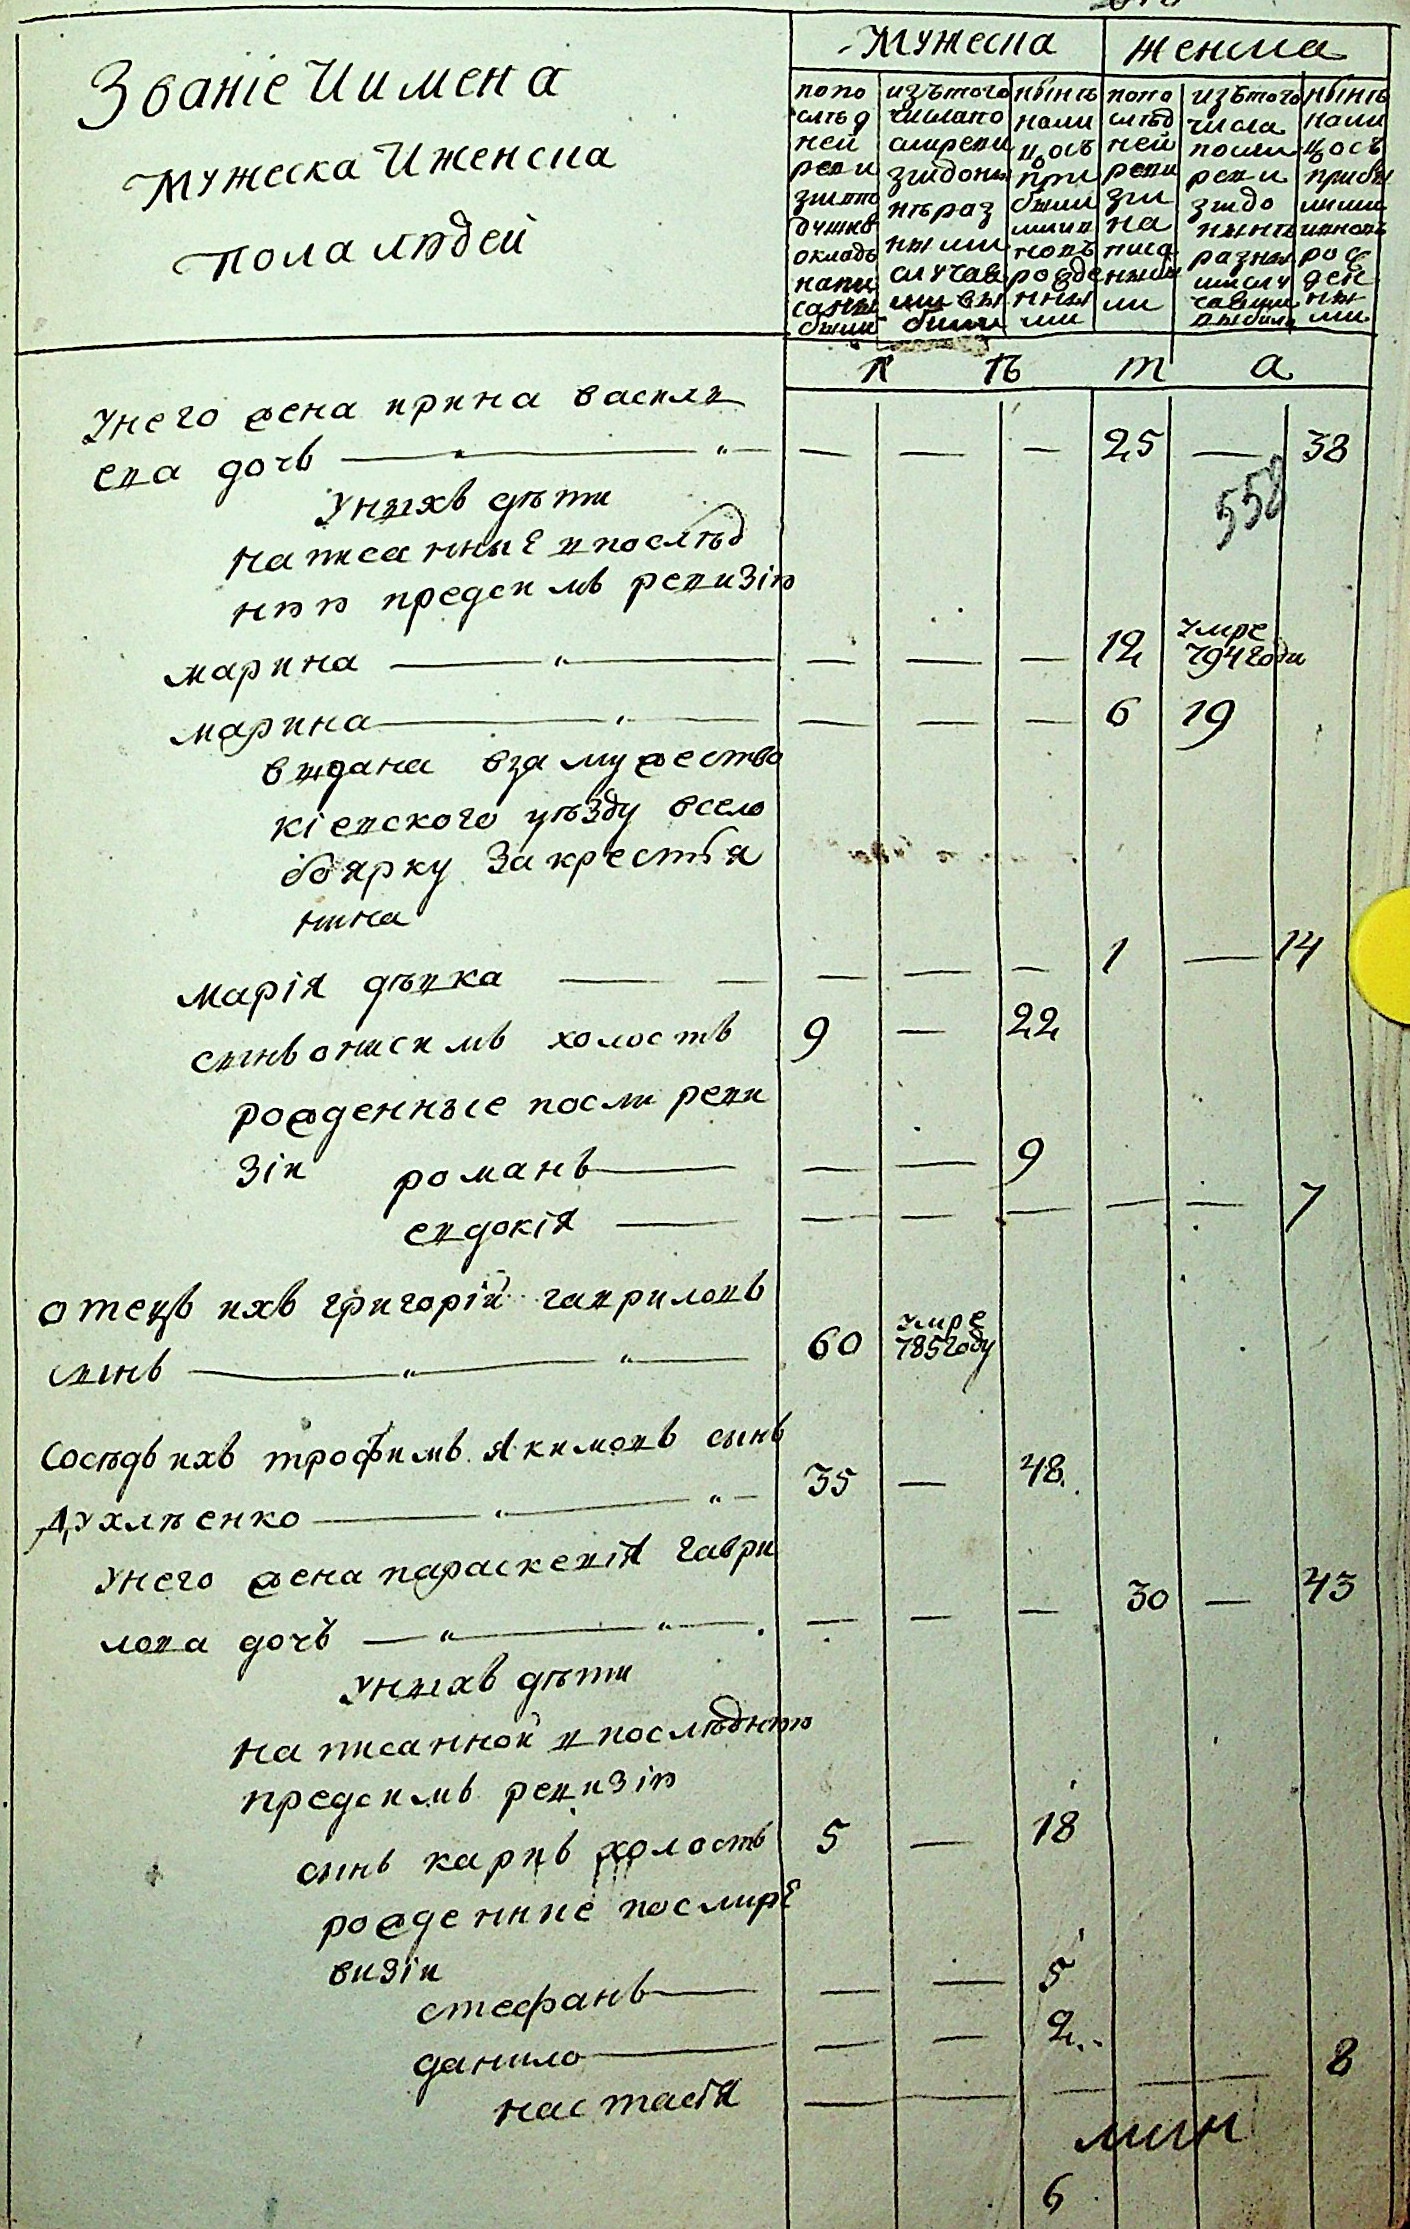 Званіе И имена
Мужеска И женска
пола людей
Мужеска
женска
попо
слѣд
ней
реви
зіипо
душно
окладъ
напи
саны
были
изътого
числапо
слиреви
зіидоны
нѣраз
ными
случая
ми вы
были
нынѣ
нали
цось
при
были
мии
новъ
рожде
нны
ми
попо
слѣд
ней
реви
зіи
на
писа
нныи
ми
изътого
числа
посли
реви
зіидо
нынѣ
разны
ми слу
чаями
выбыли
нынѣ
нали
цось
прибы
лыми
иновъ
рож
ден
ны
ми
л ѣ т а
Унего жена ирина васили
ева дочъ — — — 25 — 38
558
Унихъ дѣти
написанные впослѣд
нюю предсимъ ревизію
марина — — — 12 умре
794году
марина — — — 6 19
видана взамужество
кіевского уѣзду всело
боярку Закрестья
нина
Марія дѣвка — — — 1 — 14
синъонисимъ холостъ 9 — 22
рожденные посли реви
зіи романъ — — 9
евдокія — — — — — 7
отецъ ихъ григорій гавриловъ
синъ 60 умре
785году
Сосѣдъ ихъ трофимъ Якимовъ сынъ
Духлѣенко 35 — 48
Унего жена параскевія гаври
лова дочъ — — — 30 — 43
Унихъ дѣти
написанной впослѣднюю
предсимъ ревизію
синъ карпъ холостъ 5 — 18
рожденние послире
визіи
стефанъ — — 5
данило — — 2
настасія — — — 8
6